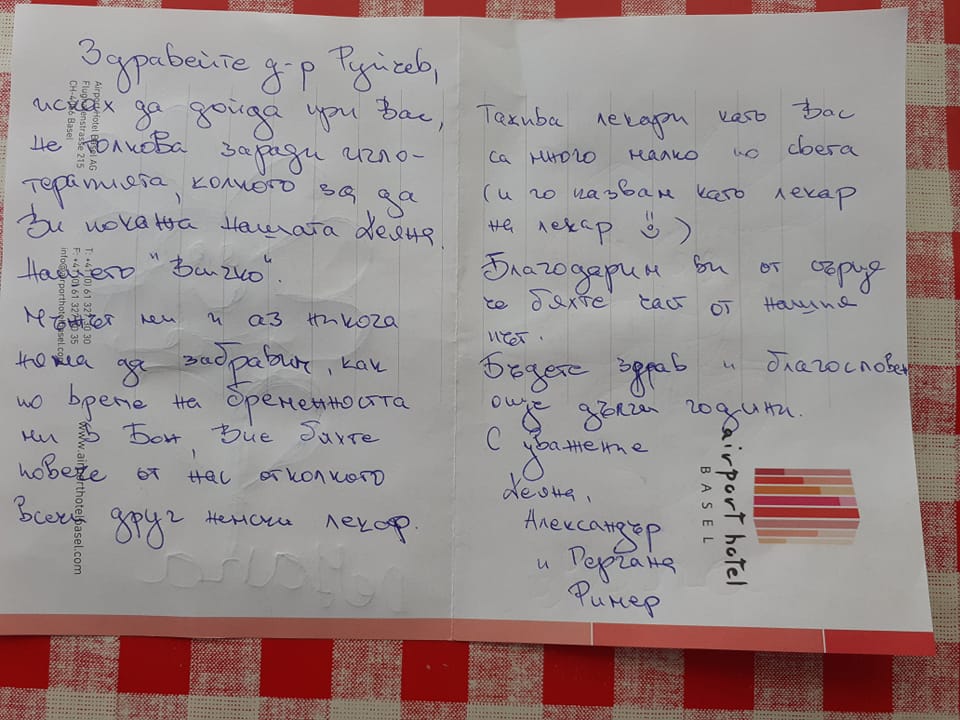 Здравейте д-р Руйчев,
исках да дойда при Вас,
не толкова заради игло-
терапията, колкото за да
Ви покажа нашата Деяна.
Нашето "Всичко".
Мъжът ми и аз никога
няма да забравим, как
по време на бременността
ми в Бон, Вие бяхте
повече от нас отколкото
всеки друг немски лекар.
Такива лекари като Вас
са много малко по света
(и го казвам като лекар
на лекар )
Благодарим Ви от сърце
че бяхте част от нашия
път.
Бъдете здрав и благословен
още дълги години.
С уважение
Деяна,
Александър
и Гергана
Ример
AirportHotel Basel AG
Flughafenstrasse 215
CH-4056 Basel
T: +41 (0) 61 327 30 30
F: +41 (0) 61 327 30 35
info@airporthotelbasel.com
www.airporthotelbasel.com
airport hotel
BASEL